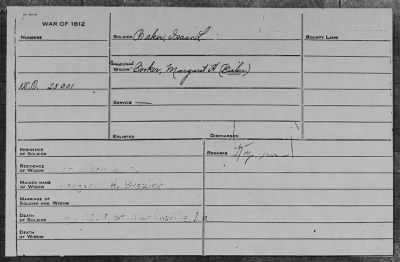 WAR OF 1812
NUMBERS
SOLDIER Baker, Isaac L
BOUNTY LAND
WIDOW Booker, Margaret H (Baker)
W.O. 25301
SERVICE —
ENLISTED
DISCHARGED
RESIDENCE OF SOLDIER
REMARKS
RESIDENCE OF WIDOW
MAIDEN NAME OF WIDOW Margaret H. Brozier
MARRIAGE OF SOLDIER AND WIDOW
DEATH OF SOLDIER St Martinsville, La
DEATH OF WIDOW